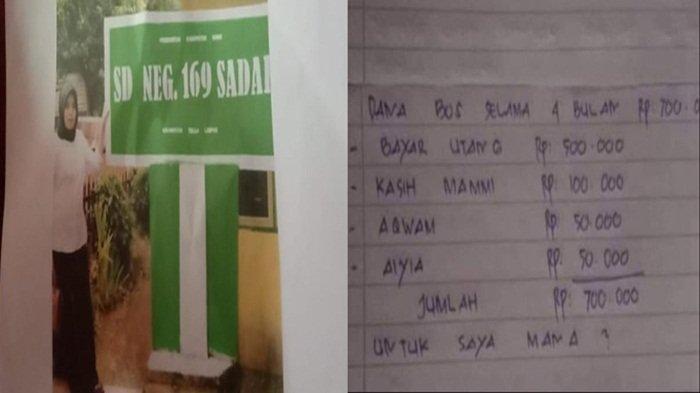 SD NEG. 169 SADAR
KECAMATAN TELLU LIMPOE
DANA BOS SELAMA 4 BULAN Rp 700.0
- BAYAR UTANG Rp. 500.000
- KASIH MAMMI Rp. 100.000
- AQWAM Rp. 50.000
- AIYIA Rp. 50.000
JUMLAH Rp. 700.000
UNTUK SAYA MANA ?